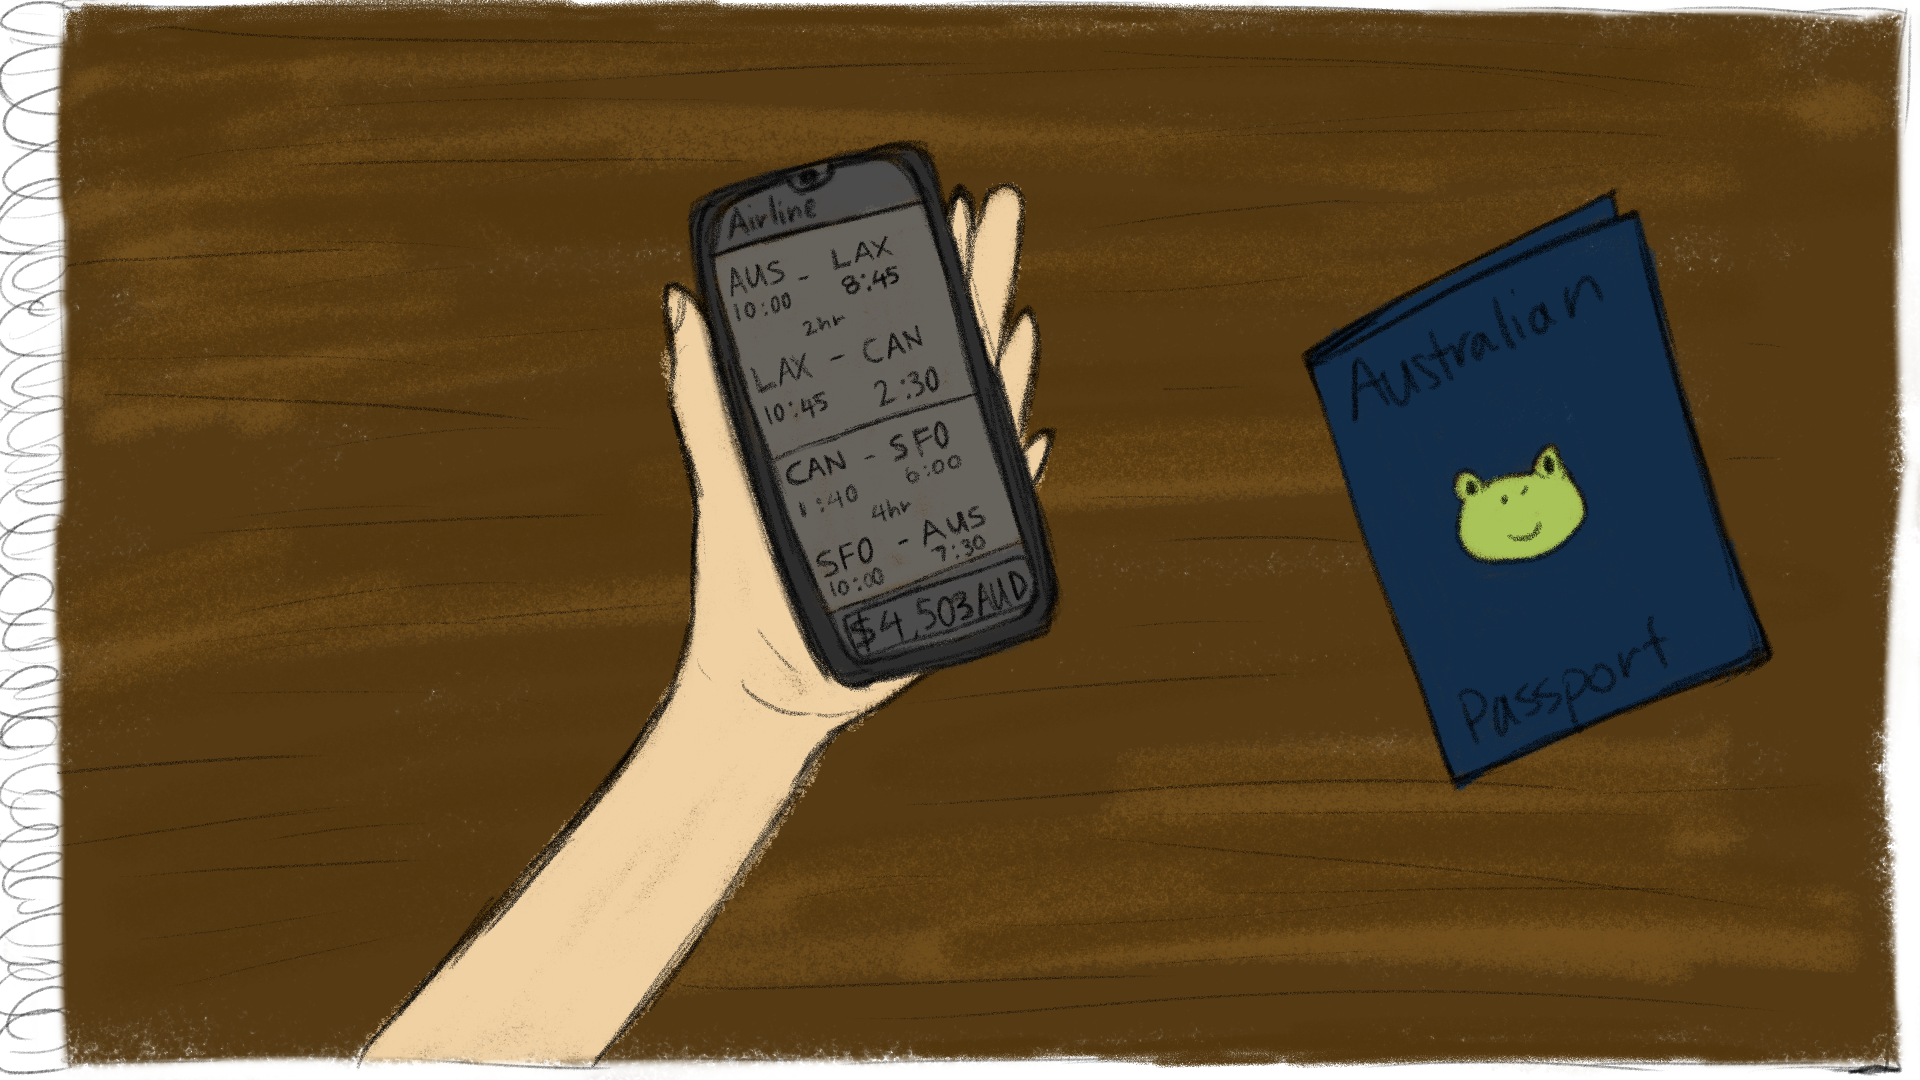 Airline
AUS - LAX
10:00 8:45
2hr
LAX - CAN
10:45 2:30
CAN - SFO
1:40 6:00
4hr
SFO - AUS
10:00 7:30
$4,503AUD
Australian
Passport